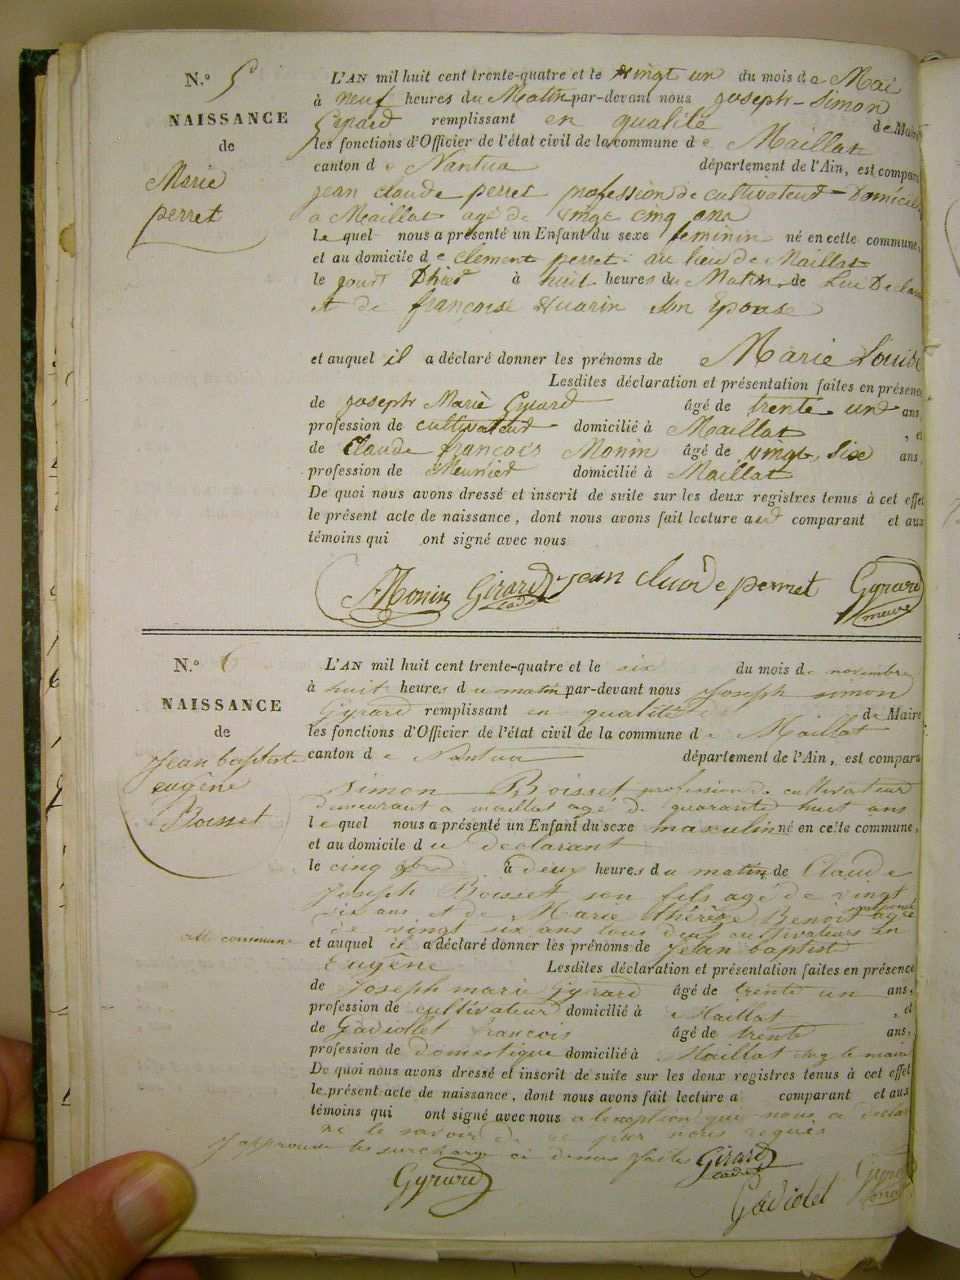 N.° 5
NAISSANCE
de
Marie
perret
L'AN mil huit cent trente-quatre et le vingt un du mois de Mai
à neuf heures du Matin par-devant nous joseph-Simon
Girard remplissant en qualité de Maire
les fonctions d'Officier de l'état civil de la commune de Maillat
canton de Nantua département de l'Ain, est comparu
jean claude perret profession de cultivateur Domicilié
a Maillat agé de vingt cinq ans
Lequel nous a présenté un Enfant du sexe feminin né en cette commune,
et au domicile de clement perret au lieu de Maillat
le jour Dhier à huit heures du Matin de Lui Declarant
et de françoise son épouse
et auquel il a déclaré donner les prénoms de Marie Louise
Lesdites déclaration et présentation faites en présence
de joseph Marie Gyrard âgé de trente un ans,
profession de cultivateur domicilié à Maillat, et
de Claude françois Monin âgé de vingt six ans,
profession de Meunier domicilié à Maillat
De quoi nous avons dressé et inscrit de suite sur les deux registres tenus à cet effet
le présent acte de naissance, dont nous avons fait lecture au comparant et aux
témoins qui ont signé avec nous
Monin Girard cadet jean claude perret Gyrard maire
N.° 6
NAISSANCE
de
Jean baptiste
eugêne
Boisset
L'AN mil huit cent trente-quatre et le six du mois de novembre
à huit heures du matin par-devant nous Joseph simon
Gyrard remplissant en qualité de Maire
les fonctions d'Officier de l'état civil de la commune de Maillat
canton de Nantua département de l'Ain, est comparu
Simon Boisset profession de cultivateur
demeurant a maillat agé de quarante huit ans
lequel nous a présenté un Enfant du sexe masculin né en cette commune,
et au domicile du declarant
le cinq 9bre à deux heures du matin de Claude
Joseph Boisset son fils agé de vingt
six ans et de Marie thérèze Benoit agée
de vingt six ans tous deux cultivateurs en
dite commune et auquel il a déclaré donner les prénoms de Jean baptiste
Eugêne Lesdites déclaration et présentation faites en présence
de Joseph marie Gyrard âgé de trente un ans,
profession de cultivateur domicilié à Maillat, et
de Gadiollet francois âgé de trente ans,
profession de domestique domicilié à Maillat chez le maire
De quoi nous avons dressé et inscrit de suite sur les deux registres tenus à cet effet
le présent acte de naissance, dont nous avons fait lecture a comparant et aux
témoins qui ont signé avec nous a lexception que nous a declaré
ne le savoir de ce par nous requis
J'approuve les surcharge ci dessus faites Girard cadet
Gyrard Gadiolet